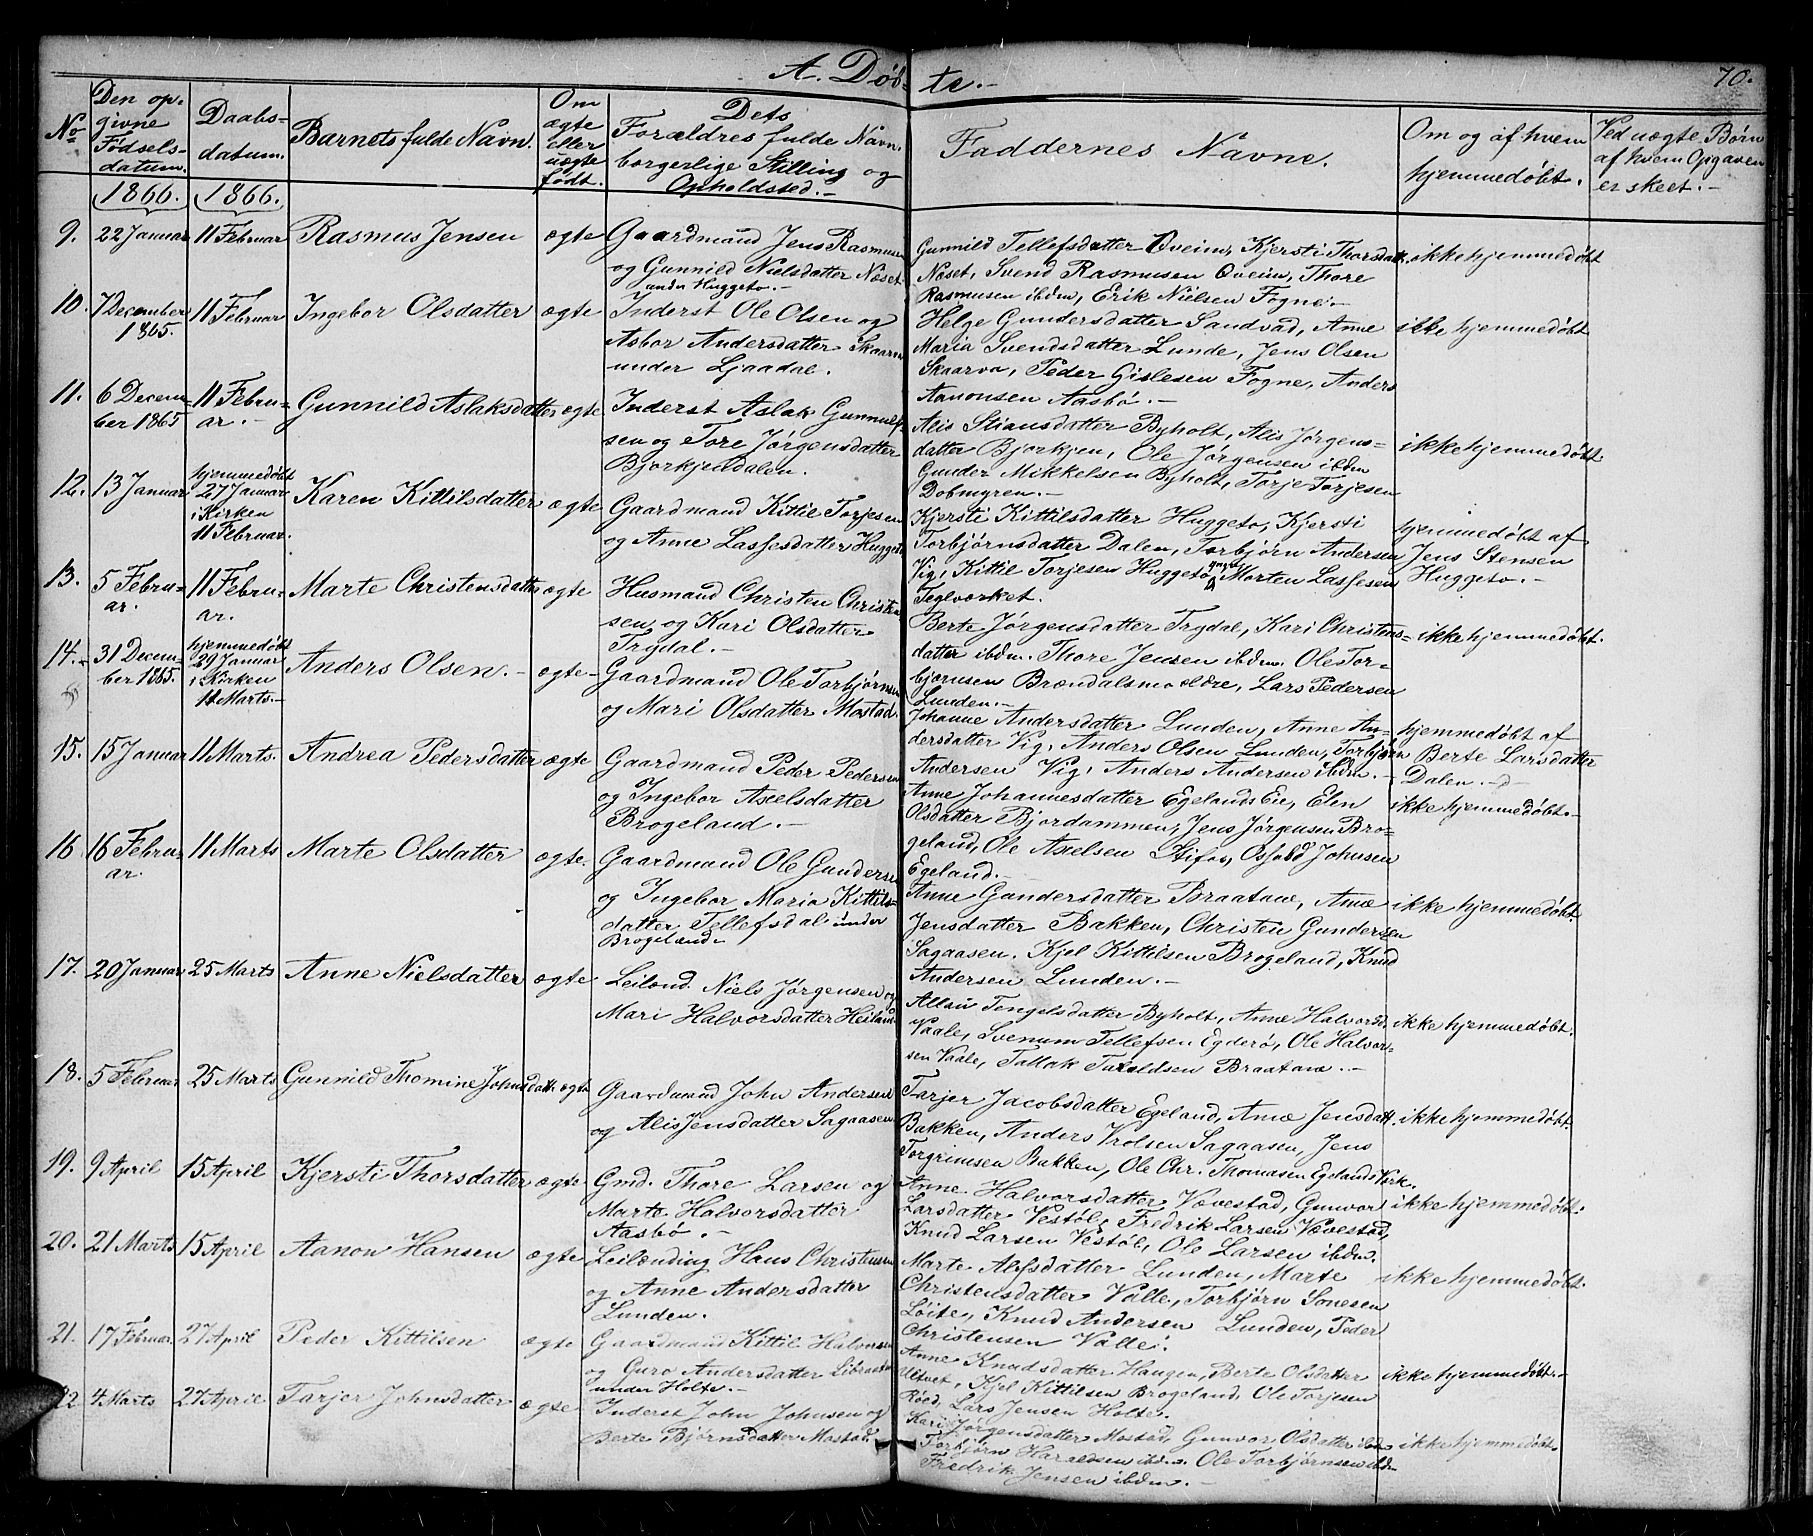 A. Døb-
te.-
70.
No
Den op-
givne
Fødsels-
datum.
Daabs-
datum.
Barnets fulde Navn.
Om
ægte
eller
uægte
født.
Dets
Forældres fulde Navn,
borgerlige Stilling og
Opholdssted.-
Faddernes Navne.
Om og af hvem
hjemmedøbt.
Ved uægte Børn
af hvem Opgaven
er skeet.-
1866.
1866.
9. 22 Januar 11 Februar Rasmus Jensen ægte
Gaardmand Jens Rasmusen
og Gunnild Nielsdatter Næset
under Huggeto.-
Gunnild Tellefsdatter Oveim, Kjersti Thorsdatt.
Næset, Svend Rasmusen Oveim, Thore
Rasmusen ibdm, Erik Nielsen Fogne.-
ikke hjemmedøbt
10. 7 December 1865. 11 Februar Ingebor Olsdatter ægte
Inderst Ole Olsen og
Asbor Andersdatter Skaarva
under Ljaadal.
Helge Gundersdatter Sandvad, Anne
Maria Svendsdatter Lunde, Jens Olsen
Skaarva, Peder Gislesen Fogne, Anders
Aanonsen Aasbø.-
ikke hjemmedøbt
11. 6 Decem-
ber 1865 11 Febru-
ar.- Gunnild Aslaksdatter ægte
Inderst Aslak Gunnulf-
sen og Tore Jørgensdatter
Bjorkjendalen.
Alis Stiansdatter Byholt, Alis Jørgens-
datter Bjorkjen, Ole Jørgensen ibdm
Gunder Mikkelsen Byholt, Torje Torjesen
Dobmyren.-
ikke hjemmedøbt
12. 13 Januar hjemmedøbt
27 Januar
i Kirken
11 Februar. Karen Kittilsdatter ægte
Gaardmand Kittil Torjesen
og Anne Lassesdatter Huggeto
Kjersti Kittilsdatter Huggeto, Kjersti
Torbjørnsdatter Dalen, Torbjørn Andersen
Vig, Kittil Torjesen Huggeto, Morten Lassesen
Teglværket.
hjemmedøbt af
Jens Stensen
Huggeto.-
13. 5 Febru-
ar. 11 Febru-
ar. Marte Christensdatter ægte
Husmand Christen Christen-
sen og Kari Olsdatter
Trydal.-
Berte Jørgensdatter Trydal, Kari Christens-
datter ibdm. Thore Jensen ibdm. Ole Tor-
bjørnsen Brændalsmo ældre, Lars Pedersen
Lunden.-
ikke hjemmedøbt.
14. 31 Decem-
ber 1865. hjemmedøbt
29 Januar
i Kirken
11 Marts.- Anders Olsen.- ægte-
Gaardmand Ole Torbjørnsen
og Mari Olsdatter Mostad.
Johanne Andersdatter Lunden, Anne An-
dersdatter Vig, Anders Olsen Lunden, Torbjørn
Andersen Vig, Anders Andersen ibdm.-
hjemmedøbt af
Berte Larsdatter
Dalen.-
15. 15 Januar 11 Marts. Andrea Pedersdatter ægte
Gaardmand Peder Pedersen
og Ingebor Axelsdatter
Brogeland.-
Anne Johannesdatter Egelands Eie, Elen
Olsdatter Bjordammen, Jens Jørgensen Bro-
geland, Ole Axelsen Stifos, Osfuld Johnsen
Egeland.-
ikke hjemmedøbt.-
16 16 Febru
ar. 11 Marts Marte Olsdatter ægte.
Gaardmand Ole Gundersen
og Ingebor Maria Kittils-
datter Tellefsdal under
Brogeland
Anne Gundersdatter Braatane, Anne
Jensdatter Bakken, Christen Gundersen
Sagaasen. Kjel Kittilsen Brogeland, Knud
Andersen Lunden.-
ikke hjemmedøbt.
17. 20 Januar 25 Marts Anne Nielsdatter ægte
Leilænd. Niels Jørgensen og
Mari Halvorsdatter Heiland
Tengelsdatter Byholt, Anne Halvorsd.
Vaale, Svenum Tellefsen Egderø, Ole Halvor-
sen Vaale, Tallak Taraldsen Braatane.-
ikke hjemmedøbt.
18. 5 Februar 25 Marts Gunnild Thomine Johnsdatt. ægte
Gaardmand John Andersen
og Alis Jensdatter Sagaasen
Tarjer Jacobsdatter Egeland, Anne Jensdatt.
Bakken, Anders Vrolsen Sagaasen, Jens
Torgrimsen Bakken, Ole Chr. Thomasen Egelands Værk.
ikke hjemmedøbt.
19. 9 April 15 April Kjersti Thorsdatter ægte
Gmd. Thore Larsen og
Marte Halvorsdatter
Aasbø.-
Anne Halvorsdatter Vævestad, Gunvor
Larsdatter Vestøl, Fredrik Larsen Vævestad,
Knud Larsen Vestøl, Ole Larsen ibdm.
ikke hjemmedøbt.
20. 21 Marts 15 April Aanon Hansen ægte
Leilænding Hans Christensen
og Anne Andersdatter
Lunden.
Marte Alfsdatter Lunden, Marte
Christensdatter Valle, Torbjørn Sonesen
Løite, Knud Andersen Lunden, Peder
Christensen Valle.
ikke hjemmedøbt.
21. 17 Februar. 27 April Peder Kittilsen ægte
Gaardmand Kittil Halvorsen
og Guro Andersdatter
under Holte.-
Anne Knudsdatter Haugen, Berte Olsdatter
Ultvet, Kjel Kittilsen Brogeland, Ole Torjesen
Røed, Lars Jensen Holte.
ikke hjemmedøbt.-
22 4 Marts 27 April Tarjer Johnsdatter ægte
Inderst John Johnsen og
Berte Bjørnsdatter Mostad.
Kari Jørgensdatter Mostad, Gunvor Olsdatter ibdm
Torbjørn Haraldsen ibdm. Ole Torbjørnsen ibdm
Fredrik Jensen ibdm.-
ikke hjemmedøbt.